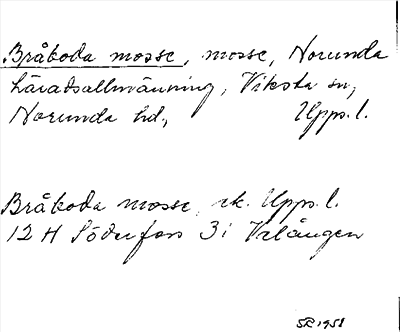 Bråboda mosse, mosse, Norunda
häradsallmänning, Viksta sn,
Norunda hd, Upps. l.
Bråboda mosse, rk. Upps. l.
12 H Söderfors 3i Vrången
SR 1958